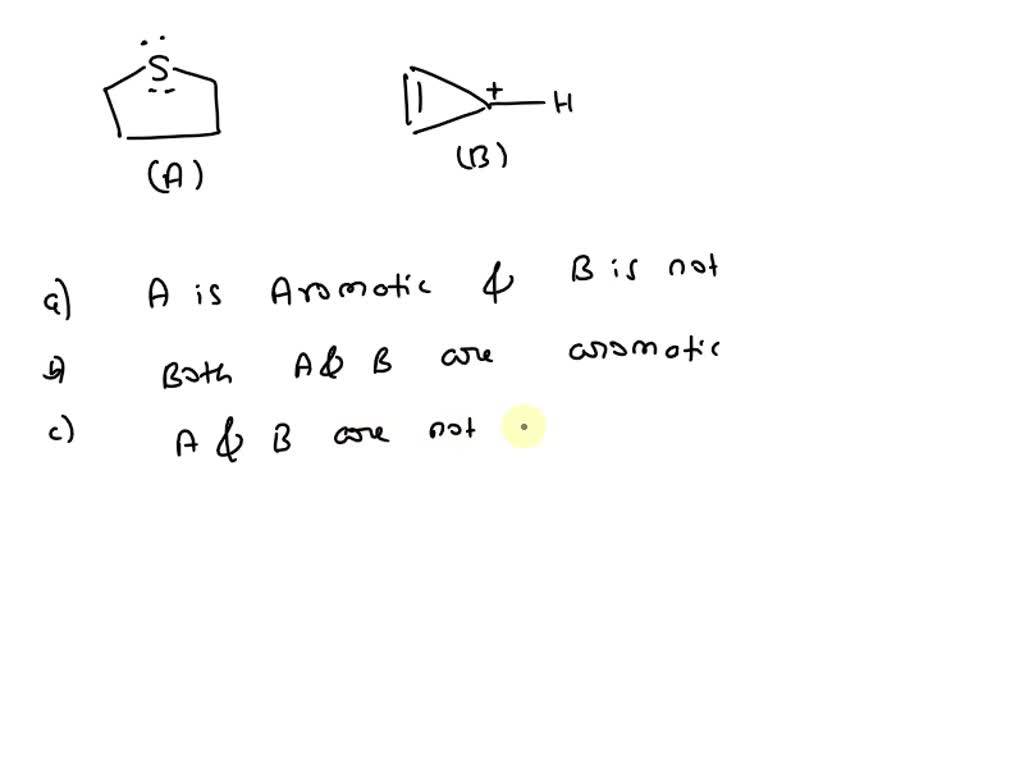 S
+ H
(A) (B)
a) A is Aromatic & B is not
b) Both A & B are aromatic
c) A & B are not